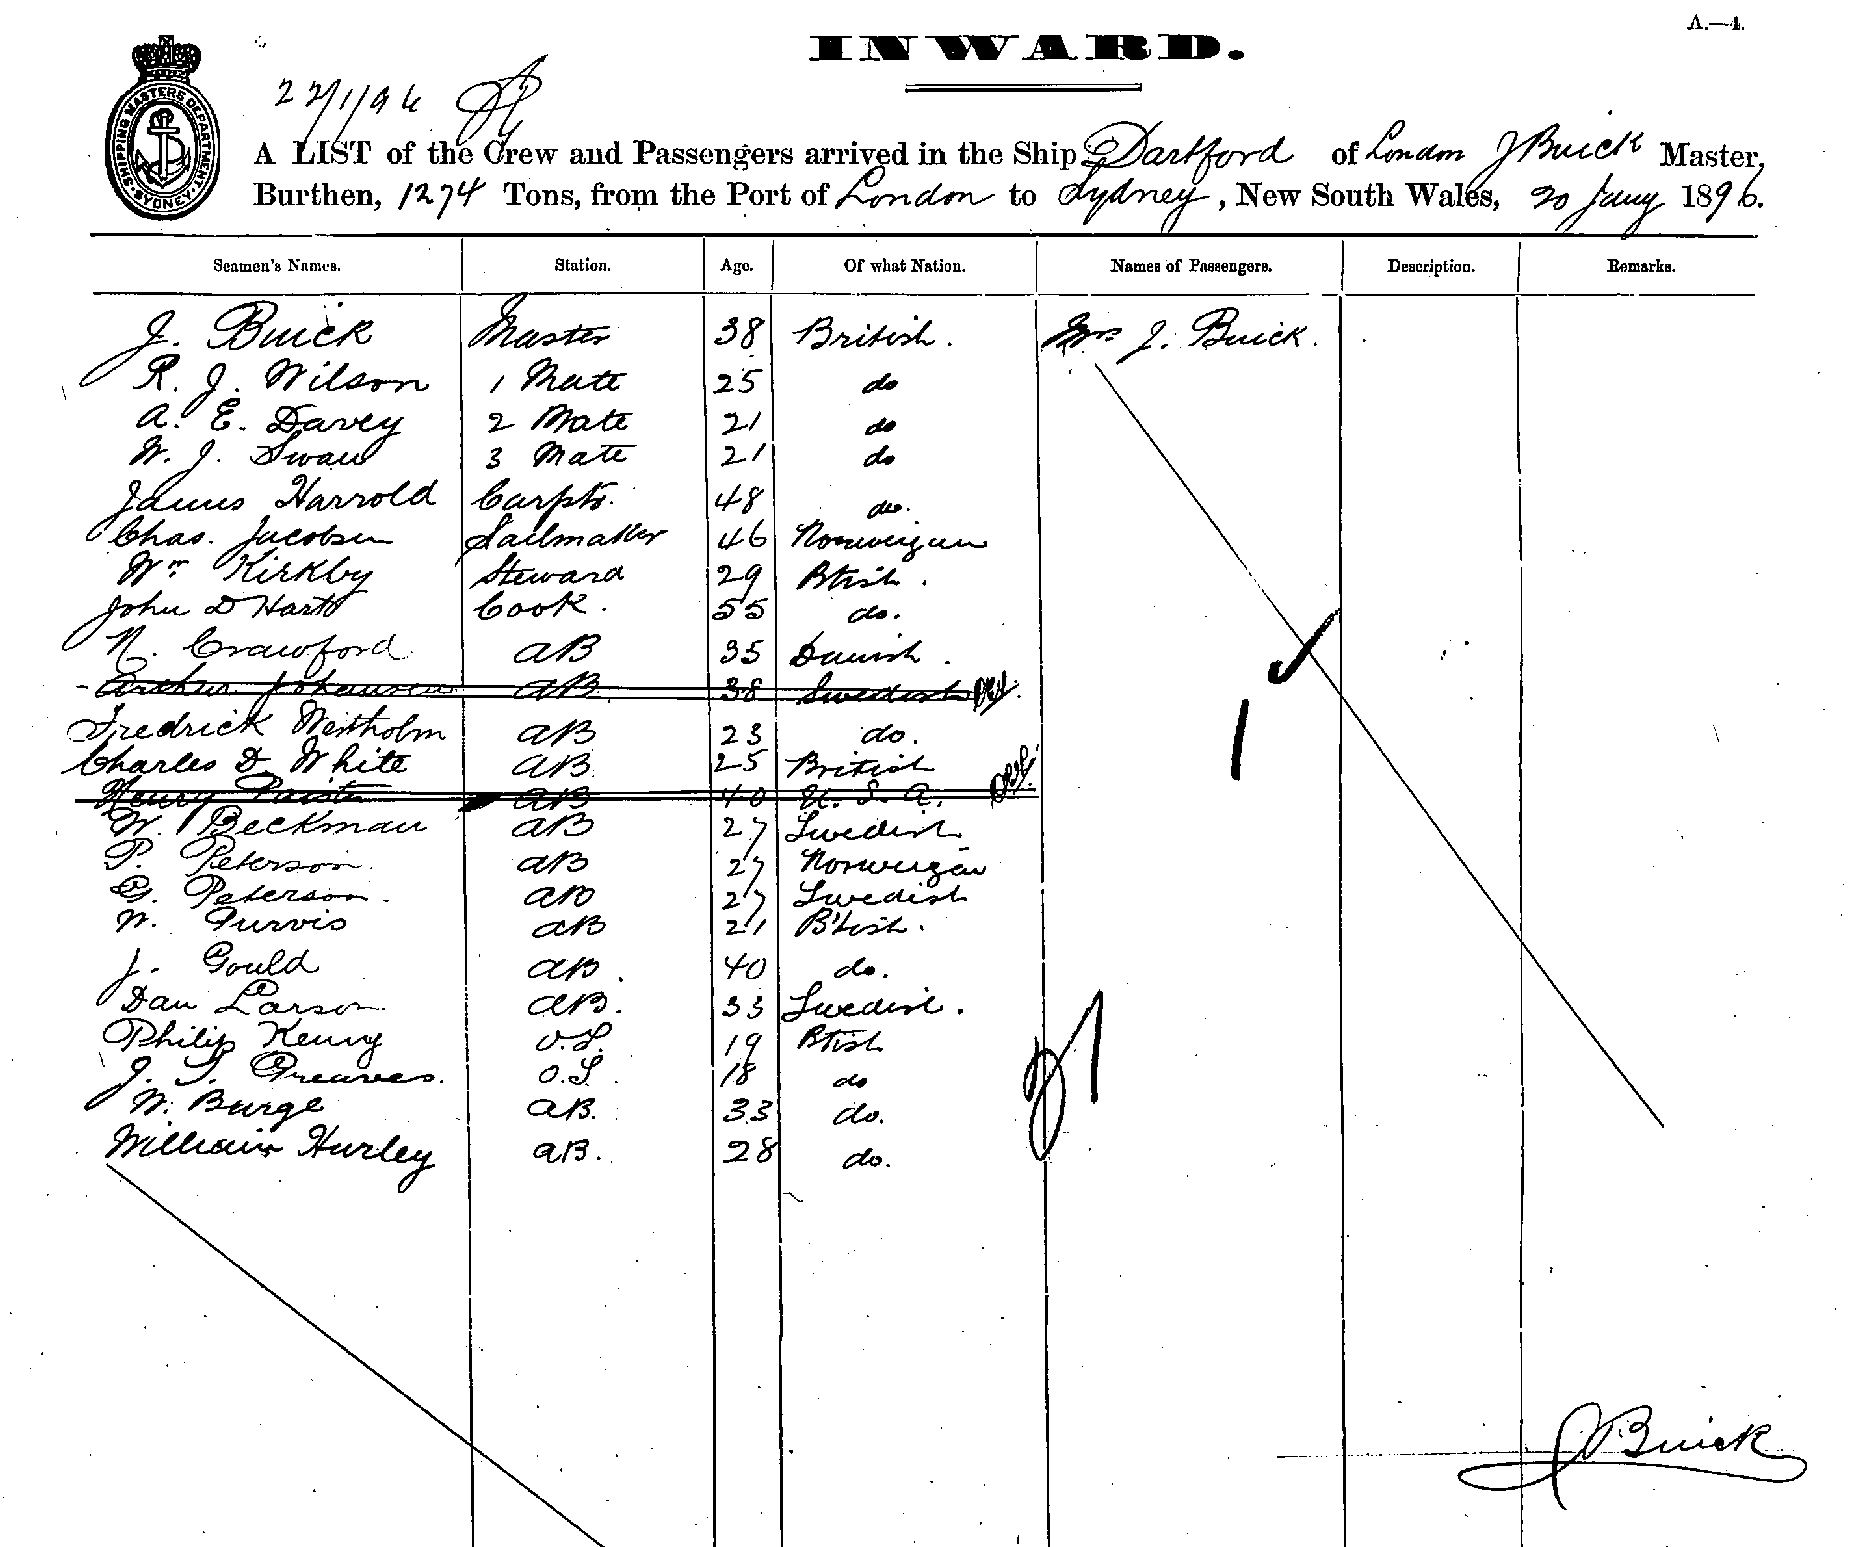 A.—4.
INWARD.
SHIPPING MASTERS DEPARTMENT SYDNEY
22/1/96
A LIST of the Crew and Passengers arrived in the Ship Dartford of London J Buick Master,
Burthen, 1274 Tons, from the Port of London to Sydney, New South Wales, 20 Jany 1896.
Seamen's Names. Station. Age. Of what Nation. Names of Passengers. Description. Remarks.
J. Buick Master 38 British. Mrs J. Buick.
R. J. Wilson 1 Mate 25 do
A. E. Davey 2 Mate 21 do
W. J. Swan 3 Mate 21 do
James Harrold Carptr. 48 do.
Chas. Jacobsen Sailmaker 46 Norweigan
Wm Kirkby Steward 29 Btish.
John D Hart Cook. 55 do.
N. Crawford AB 35 Danish.
Arthur Johansen AB 38 Swedish
Fredrick Westholm AB 23 do.
Charles D White AB 25 British
Henry AB 40 U. S. A.
W. Beckman AB 27 Swedish
P. Peterson AB 27 Norweigan
G. Peterson. AB 27 Swedish
W. Purvis AB 21 Btish.
J. Gould AB. 40 do.
Dan Larson AB. 33 Swedish.
Philip Kenny O.S. 19 Btish
J. S. Greaves. O.S. 18 do
W. Burge AB. 33 do.
William Hurley AB. 28 do.
1
21
J Buick